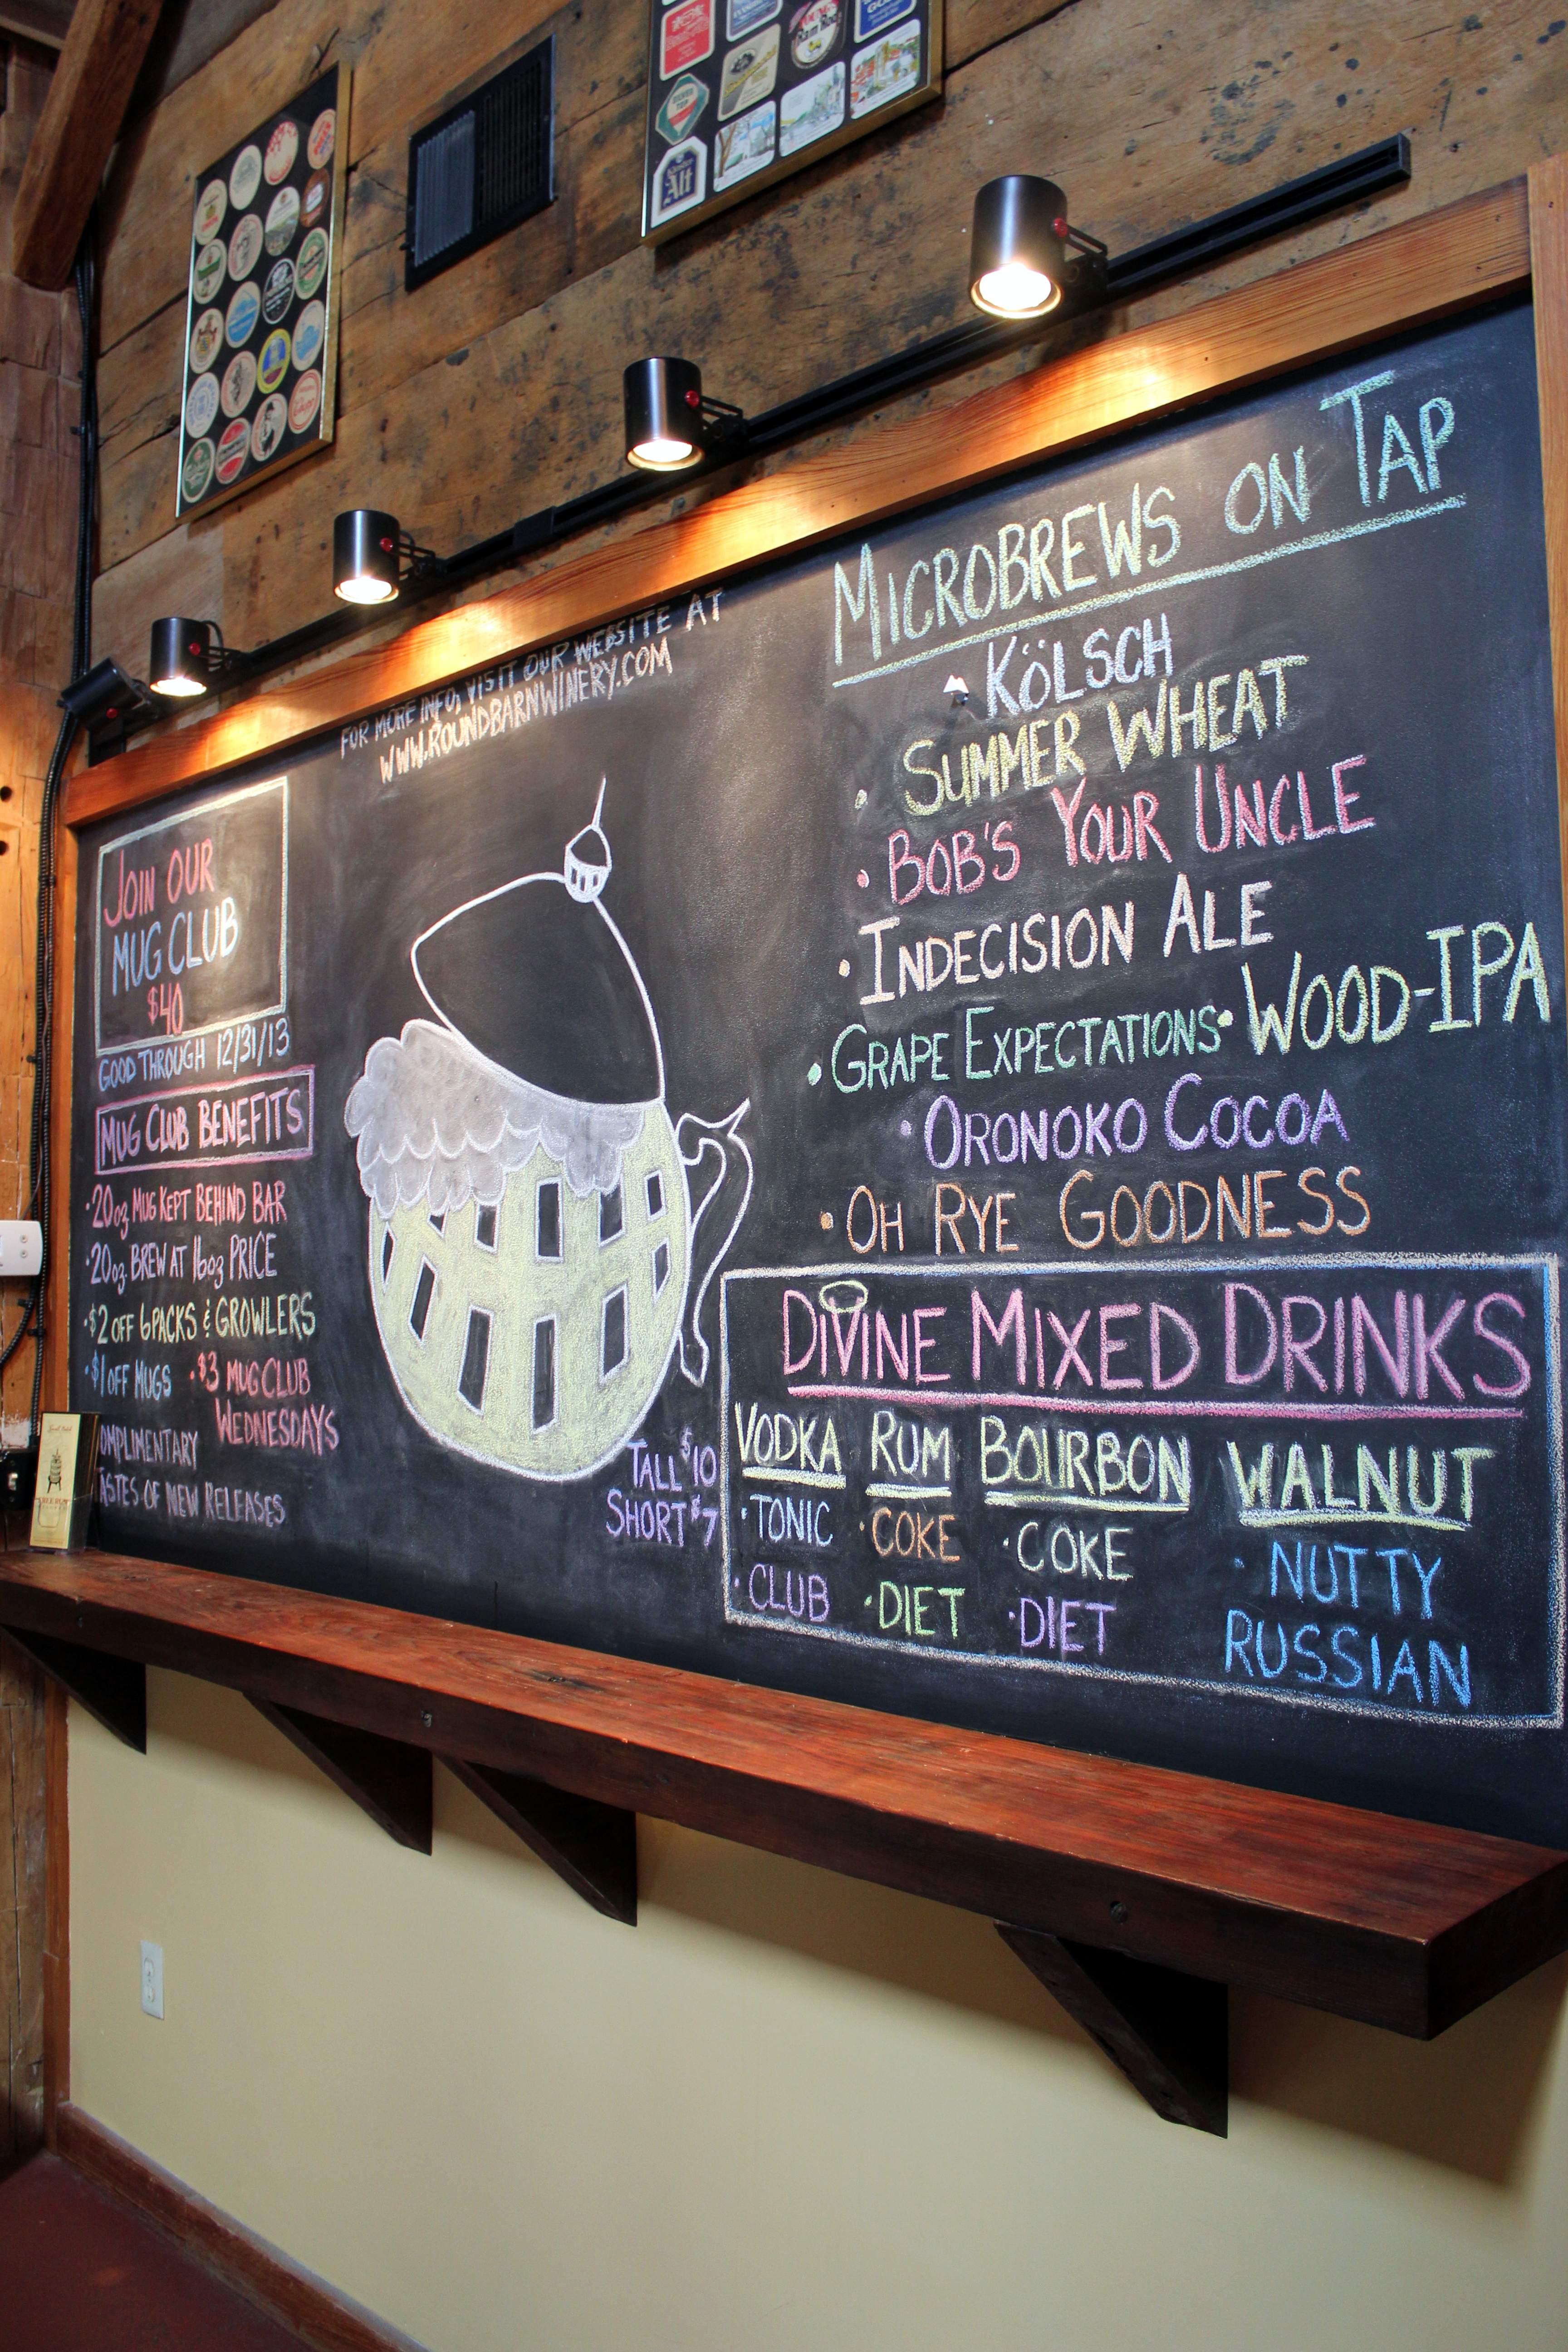 Alt
FOR MORE INFO, VISIT OUR WEBSITE AT
WWW.ROUNDBARNWINERY.COM
JOIN OUR
MUG CLUB
$40
GOOD THROUGH 12/31/13
MUG CLUB BENEFITS
·20oz MUG KEPT BEHIND BAR
·20oz BREW AT 16oz PRICE
·$2 OFF 6PACKS & GROWLERS
·$1 OFF MUGS ·$3 MUG CLUB
WEDNESDAYS
OMPLIMENTARY
ASTES OF NEW RELEASES
MICROBREWS ON TAP
KÖLSCH
· SUMMER WHEAT
· BOB'S YOUR UNCLE
· INDECISION ALE
· GRAPE EXPECTATIONS · WOOD-IPA
· ORONOKO COCOA
· OH RYE GOODNESS
TALL $10
SHORT $7
DIVINE MIXED DRINKS
VODKA RUM BOURBON WALNUT
·TONIC ·COKE ·COKE · NUTTY
·CLUB ·DIET ·DIET RUSSIAN